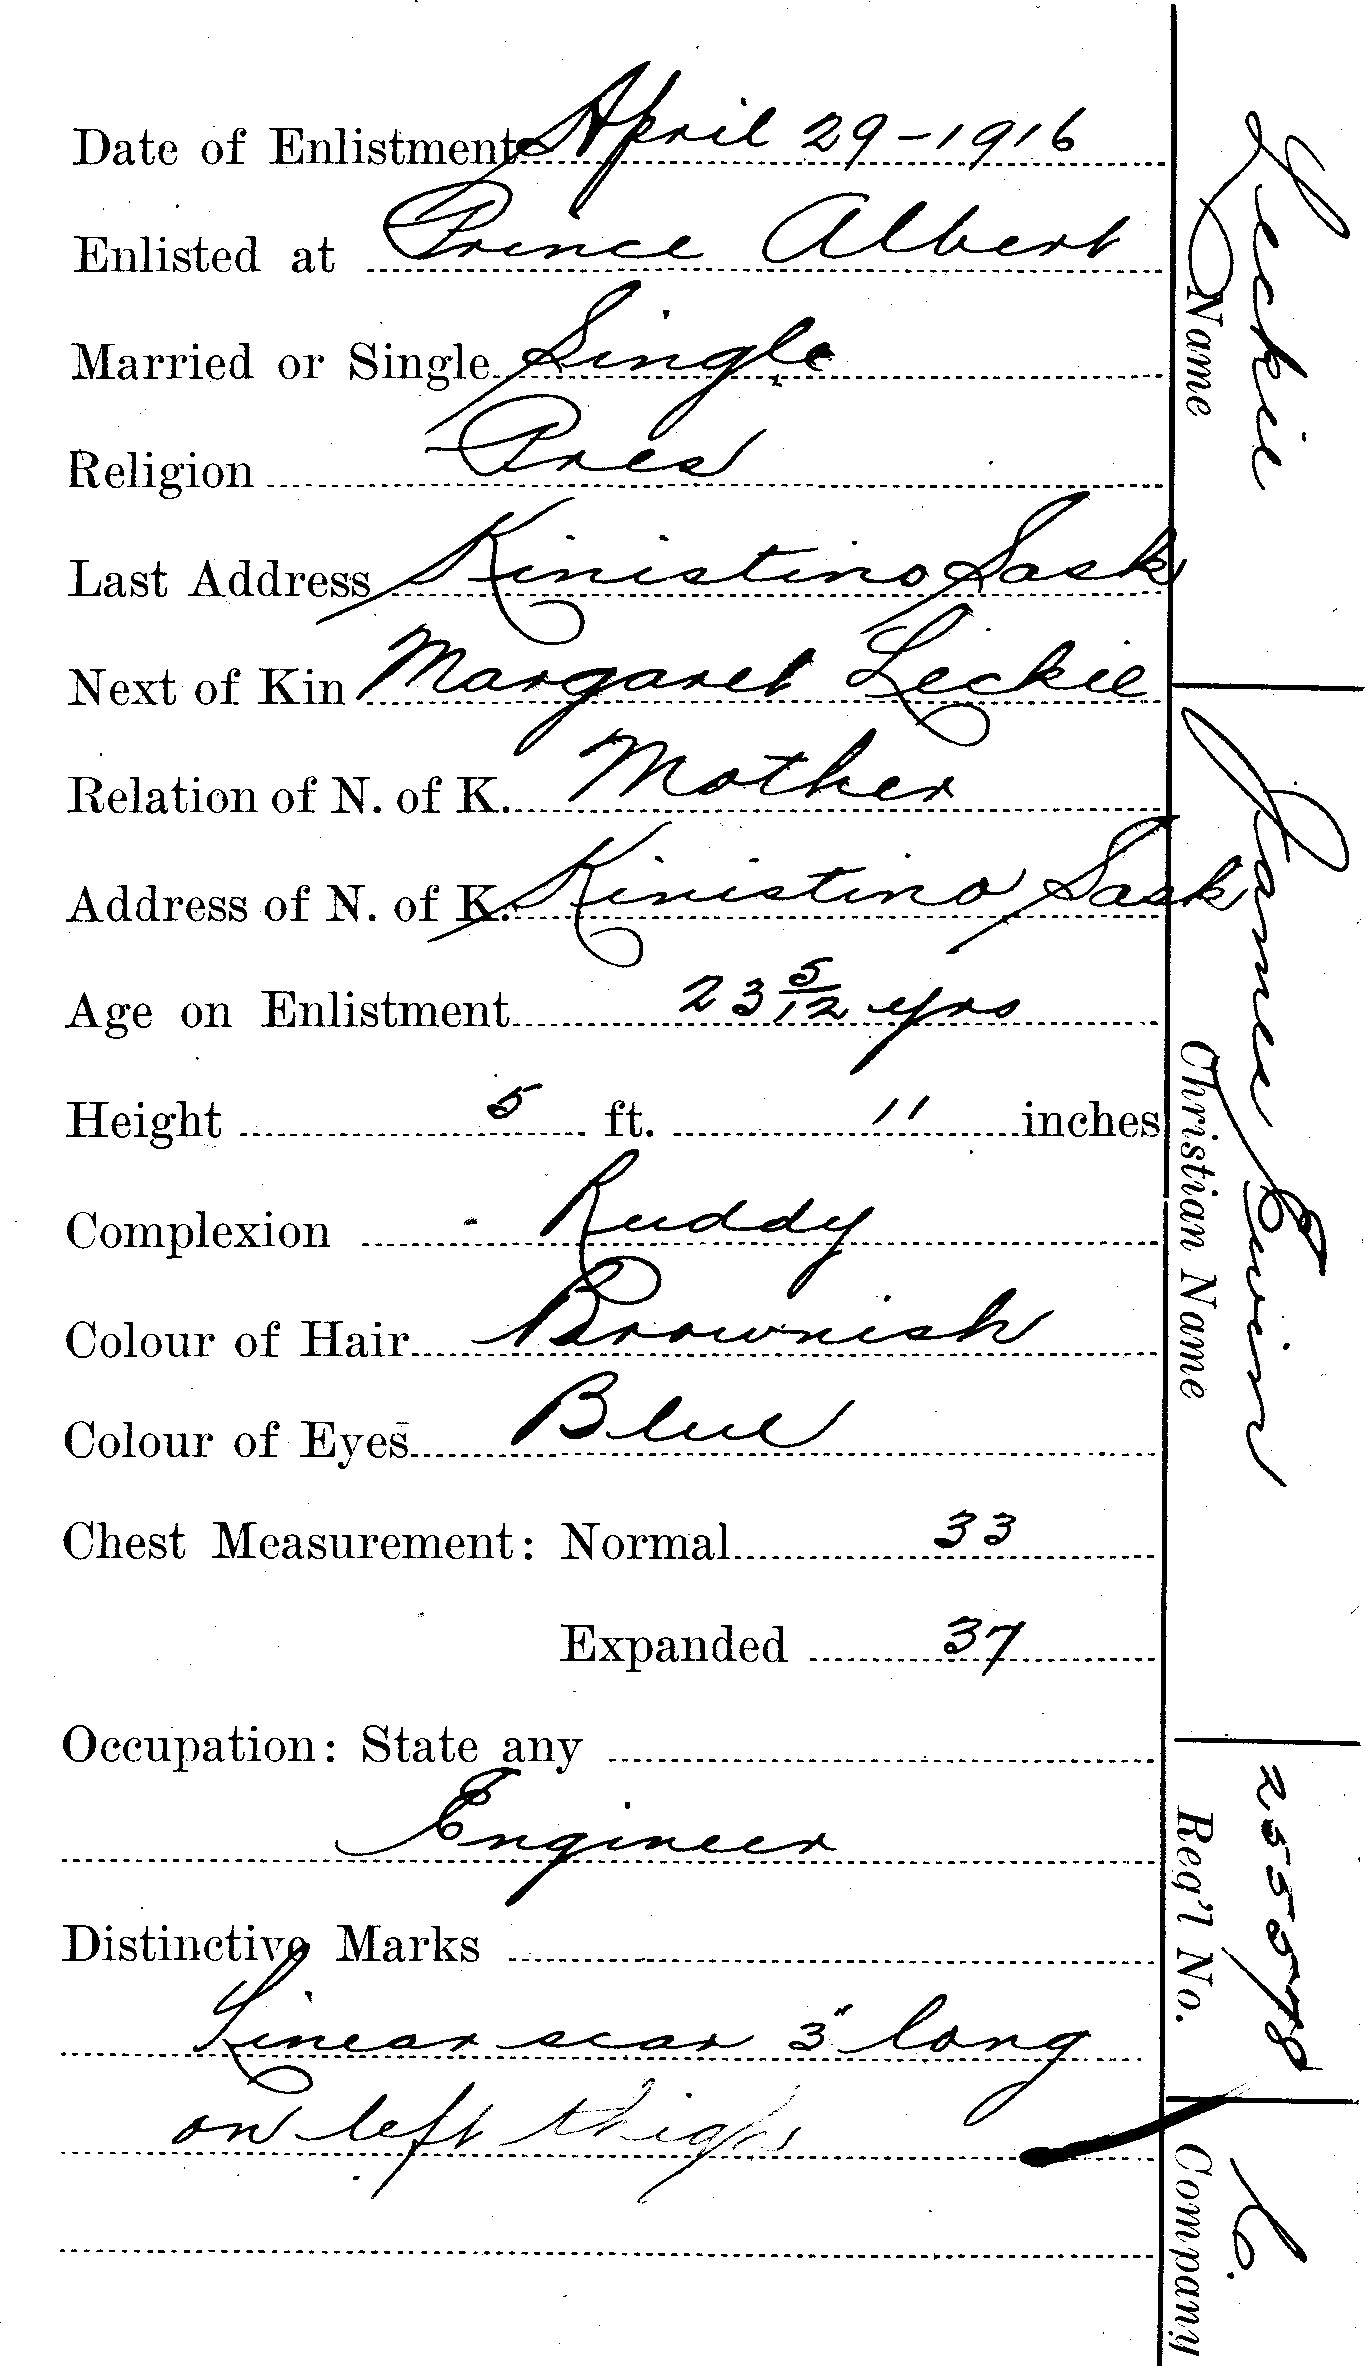 Date of Enlistment April 29-1916
Enlisted at Prince Albert
Married or Single Single
Religion Pres
Last Address Kinistino Sask
Next of Kin Margaret Leckie
Relation of N. of K. Mother
Address of N. of K. Kinistino Sask
Age on Enlistment 23 5/12 yrs
Height 5 ft. 11 inches
Complexion Ruddy
Colour of Hair Brownish
Colour of Eyes Blue
Chest Measurement: Normal 33
Expanded 37
Occupation: State any
Engineer
Distinctive Marks
Linear scar 3" long
on left thigh
Leckie
Name
James Ewin
Christian Name
255598
Reg'l No.
C.
Company